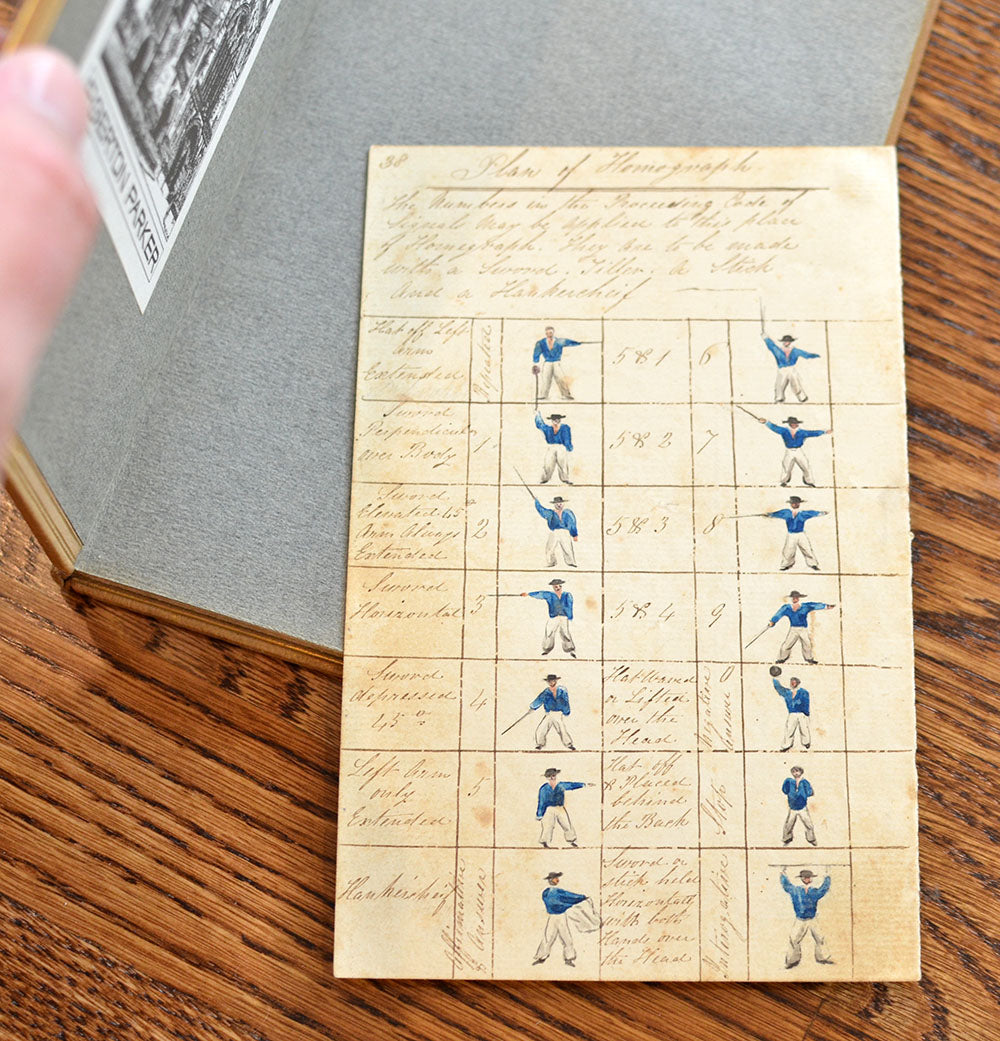 BERTON PARKER
38
Plan of Homograph
The Numbers in the Preceeding Code of
Signals may be applied to this plan
of Homograph. They are to be made
with a Sword. Tiller. a Stick
And a Hankercheif
Hat off Left
Arm
Extended
Repeated
5 & 1
6
Sword
Perpendicular
over Body
1
5 & 2
7
Sword
Elevated 45°
Arm Always
Extended
2
5 & 3
8
Sword
Horizontal
3
5 & 4
9
Sword
depressed
45°
4
Hat Waved
or Lifted
over the
Head
Negative
Answer
0
Left Arm
only
Extended
5
Hat off
& Placed
behind
the Back
Stop
Hankercheif
Affirmative
& Answer
Sword or
stick held
Horizontally
with both
Hands over
the Head